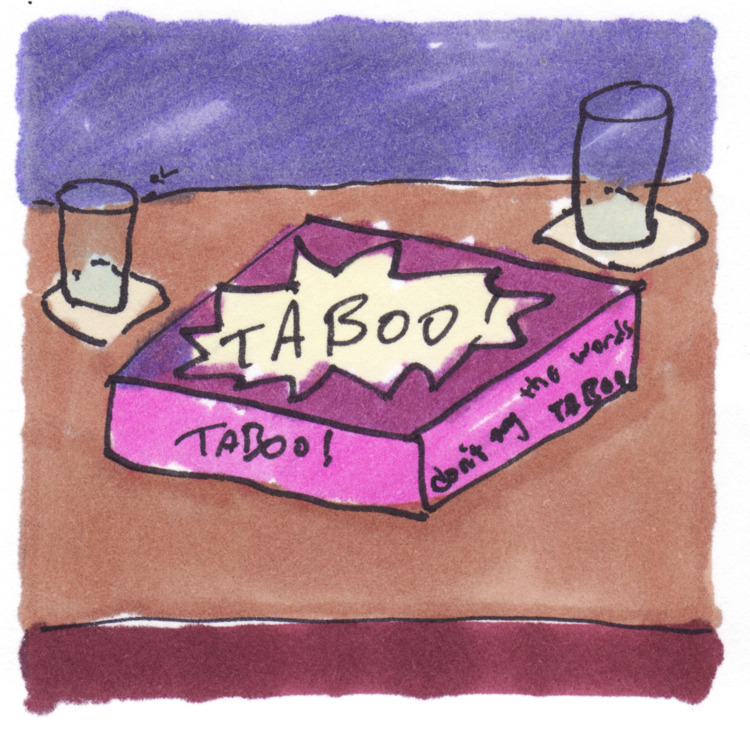 TABOO!
TABOO!
don't say the words
TABOO